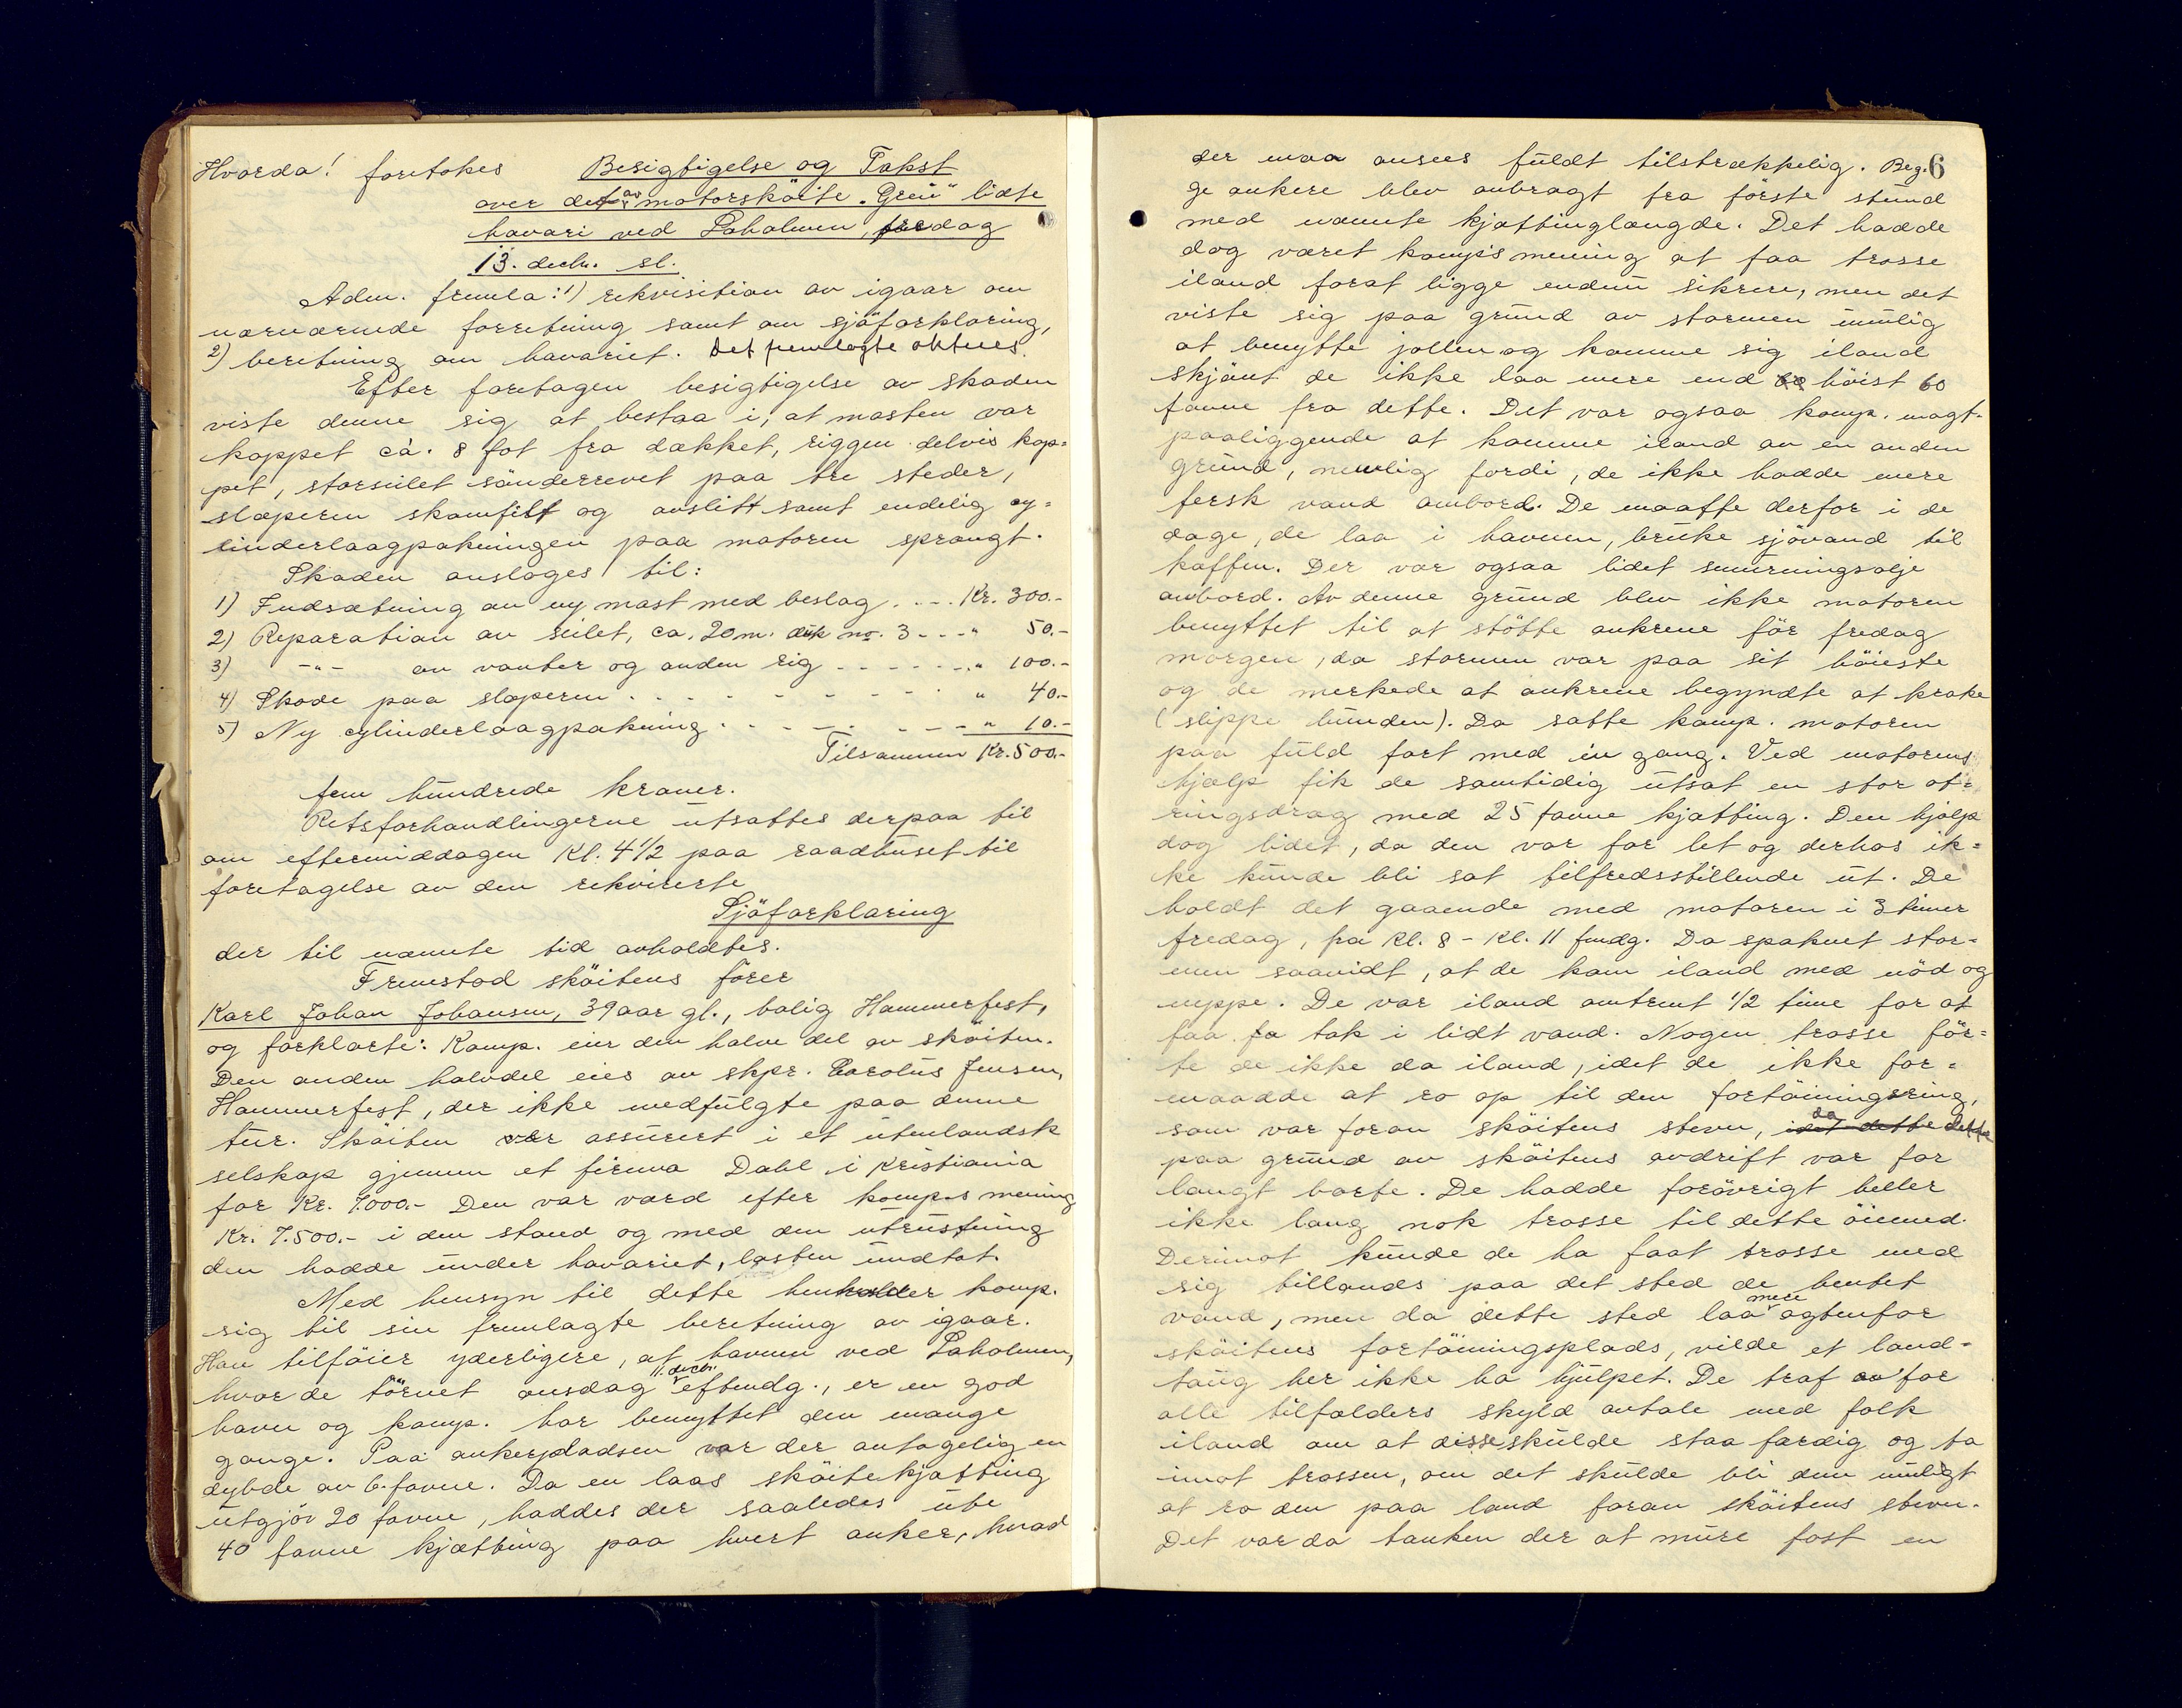 Hvorda! foretokes Besigtigelse og Takst
over det av motorsköite "Greü" lidte
havari ved Laholmen, fredag
13. decbr. sl.
Adm. fremla: 1) rekvisition av igaar om
nærværende forretning samt om sjöforklaring,
2) beretning om havariet. Det fremlagte aktnes.
Efter foretagen besigtigelse av skaden
viste denne sig at bestaa i, at masten var
kappet cá. 8 fot fra dækket, riggen delvis kap=
pet, storseilet sönderrevet paa tre steder,
slæperen skamfilt og avslitt samt endelig cy=
linderlaagpakningen paa motoren sprængt.
Skaden ansloges til:
1) Indsætning av ny mast med beslag .... Kr. 300.-
2) Reparation av seilet, ca. 20 m. dük no. 3 - - - " 50.-
3) -"- av vanter og anden rig - - - - - - - " 100.-
4) Skade paa slæperen - - - - - - - - " 40.-
5) Ny cylinderlaagpakning - - - - - - - " 10.-
Tilsammen Kr. 500.-
fem hündrede kroner.
Retsforhandlingerne ütsattes derpaa til
om eftermiddagen Kl. 4 1/2 paa raadhüset til
foretagelse av den rekvirerte
Sjöforklaring
der til nævnte tid avholdtes.
Fremstod sköitens förer
Karl Johan Johansen, 39 aar gl., bolig Hammerfest,
og forklarte: Komp. eier den halve del av sköiten.
Den anden halvdel eies av skpr. Carolüs Jensen,
Hammerfest, der ikke medfülgte paa denne
tür. Sköiten var assürert i et ütenlandsk
selskap gjennem et firma Dahl i Kristiania
for Kr. 7.000.- Den var værd efter komp.s mening
Kr. 7.500.- i den stand og med den ütrüstning
den hadde ünder havariet, lasten ündtat.
Med hensyn til dette henholder komp.
sig til sin fremlagte beretning av igaar.
Han tilföier yderligere, at havnen ved Laholmen,
hvor de törnet onsdag 11. decbr. eftmdg., er en god
havn og komp. har benyttet den mange
gange. Paa ankerpladsen var der antagelig en
dybde av 6. favne. Da en laas sköitekjætting
ütgjör 20 favne, haddes der saaledes üte
40 favne kjætting paa hvert anker, hvad
der maa ansees füldt tilstrækkelig. Beg- 6
ge ankere blev anbragt fra förste stünd
med nævnte kjættinglængde. Det hadde
dog været komp's mening at faa trosse
iland forat ligge endnü sikrere, men det
viste sig paa gründ av stormen ümülig
at benytte jollen og komme sig iland
skjönt de ikke laa mere end höist 60
favne fra dette. Det var ogsaa komp. magt-
paaliggende at komme iland av en anden
gründ, nemlig fordi, de ikke hadde mere
fersk vand ombord. De maatte derfor i de
dage, de laa i havnen, brüke sjövand til
kaffen. Der var ogsaa lidet smurningsolje
ombord. Av denne gründ blev ikke motoren
benyttet til at stötte ankrene för fredag
morgen, da stormen var paa sit höieste
og de merkede at ankrene begyndte at krake
(slippe bünden). Da satte komp. motoren
paa füld fart med en gang. Ved motorens
hjælp fik de samtidig ütsat en stor ot=
ringsdrag med 25 favne kjætting. Den hjalp
dog lidet, da den var for let og derhos ik=
ke künde bli sat tilfredsstillende üt. De
holdt det gaaende med motoren i 3 timer
fredag, fra Kl. 8 - Kl. 11 fmdg. Da spaknet stor=
men saavidt, at de kom iland med nöd og
neppe. De var iland omtrent 1/2 time for at
faa fa tak i lidt vand. Nogen trosse för=
te de ikke da iland, idet de ikke for=
maadde at ro op til den fortöiningsring,
som var foran sköitens stevn, idet dette da dette
paa gründ av sköitens avdrift var for
langt borte. De hadde forövrigt heller
ikke lang nok trosse til dette öiemed.
Derimot künde de ha faat trosse med
sig tillands paa det sted de hentet
vand, men da dette sted laa mere agtenfor
sköitens fortöiningsplads, vilde et land-
taüg her ikke ha hjülpet. De traf av' for
alle tilfælders skyld avtale med folk
iland om at disse skülde staa færdig og ta
imot trossen, om det skülde bli dem müligt
at ro den paa land foran sköitens stevn.
Det var da tanken der at müre fast en